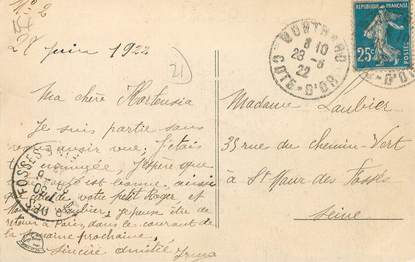 N° 2
28 juin 1922
21
Ma chère Hortensia
Je suis partie sans
vous avoir vue; j'étais
J'espère que
est bonne, ainsi
que de votre petit Roger et
Laubier, je pense être de
retour à Paris, dans le courant de
la semaine prochaine,
Sincère amitié Irma
MONTBARD
8 10
28 -6
22
COTE-D'OR
REPUBLIQUE FRANÇAISE
25c
POSTES
E-D'OR
Madame Laubier
35 rue du Chemin-Vert
à St Maur des Fossés
Seine
DES-FOSSES